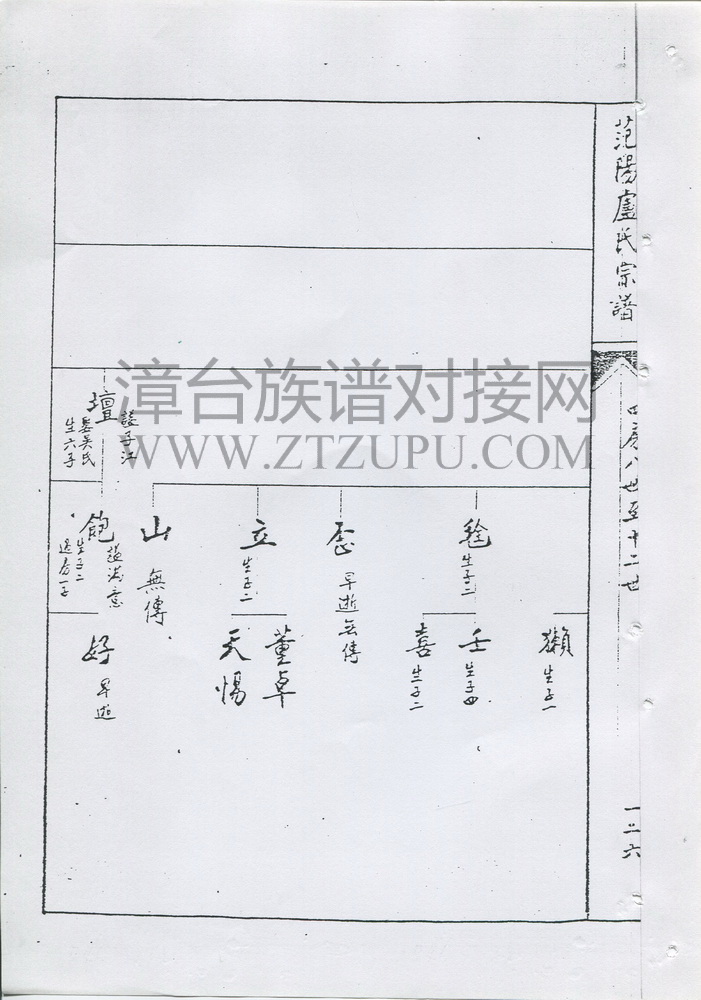 范陽盧氏宗譜
四房八世至十二世
一二六
漳台族谱对接网
WWW.ZTZUPU.COM
壇
諡子江
娶吳氏
生六子
生子二
歪
早逝無傳
立
生子二
山
無傳
飽
生子二
獺
生子一
壬
生子四
喜
生子二
董卓
天惕
好
早逝